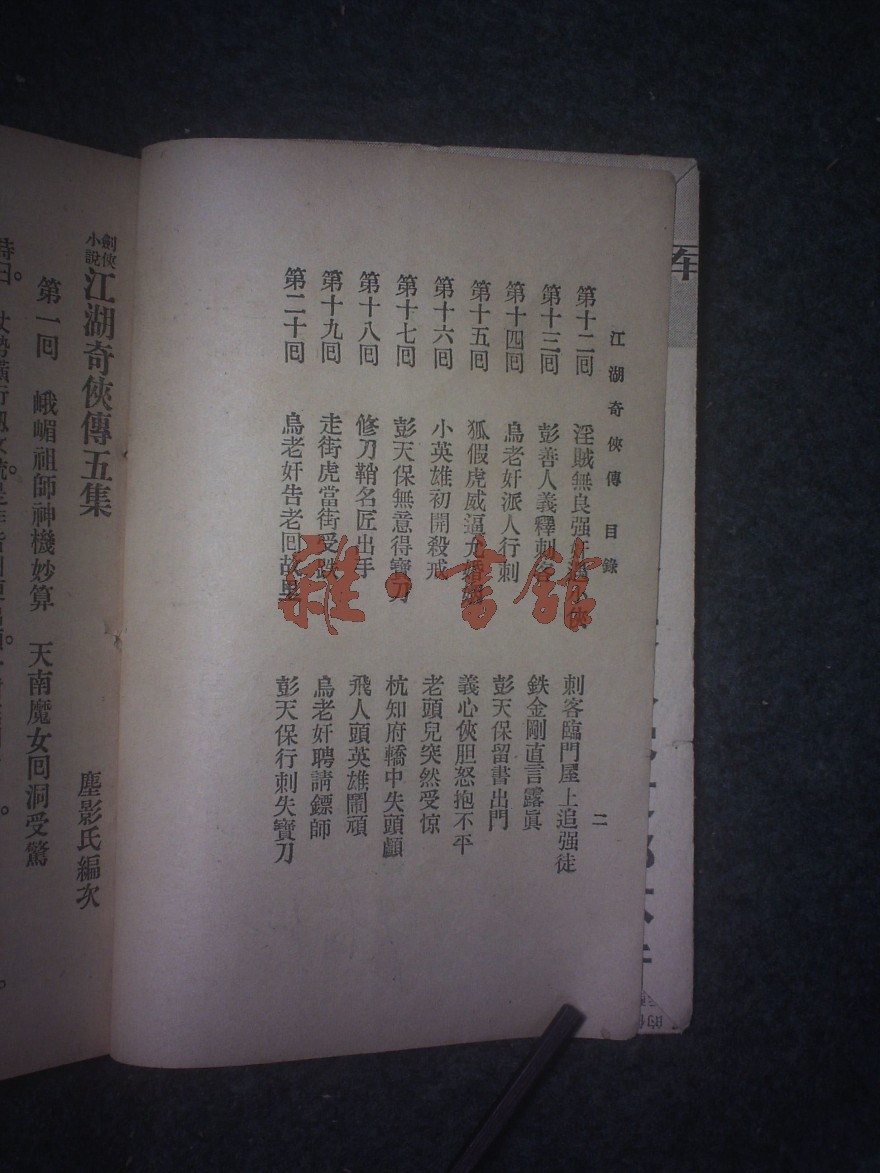 江湖奇俠傳 目錄 二
第十二囘 淫賊無良强 小俠 刺客臨門屋上追强徒
第十三囘 彭善人義釋刺客 鉄金剛直言露眞
第十四囘 烏老奸派人行刺 彭天保留書出門
第十五囘 狐假虎威逼 婚姻 義心俠胆怒抱不平
第十六囘 小英雄初開殺戒 老頭兒突然受惊
第十七囘 彭天保無意得寶刀 杭知府轎中失頭顱
第十八囘 修刀鞘名匠出手 飛人頭英雄鬧頑
第十九囘 走街虎當街受跌 烏老奸聘請鏢師
第二十囘 烏老奸告老囘故里 彭天保行刺失寶刀
雜·書館
劍俠小說 江湖奇俠傳五集
塵影氏編次
第一囘 峨嵋祖師神機妙算 天南魔女囘洞受驚